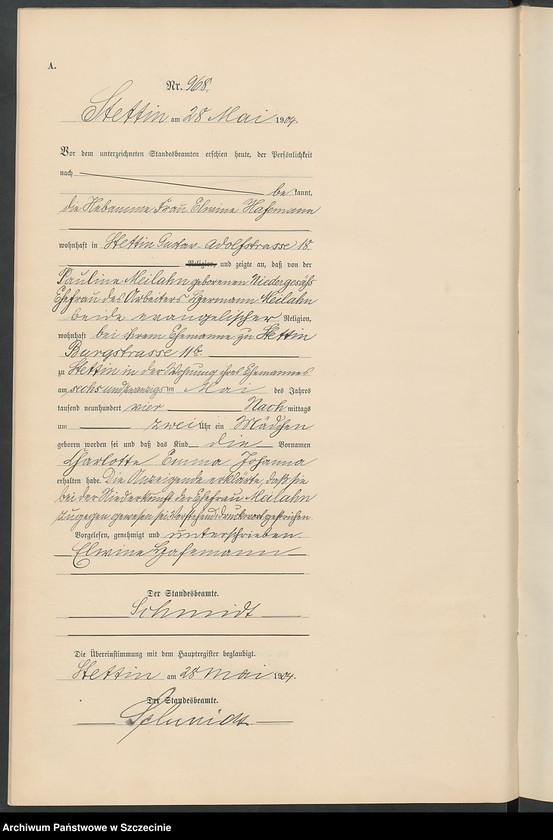 A.
Nr. 968.
Stettin am 28 Mai 1904.
Vor dem unterzeichneten Standesbeamten erschien heute, der Persönlichkeit
nach
be kannt,
die Hebamme Frau Elwine Hafemann
wohnhaft in Stettin Gustav-Adolfstrasse 18.
Religion, und zeigte an, daß von der
Pauline Meilahn geborenen Niedergesäß
Ehefrau des Arbeiters Hermann Meilahn
beide evangelischer Religion,
wohnhaft bei ihrem Ehemanne zu Stettin
Burgstrasse 11
zu Stettin in der Wohnung ihres Ehemannes
am sechsundzwanzigsten Mai des Jahres
tausend neunhundert vier Nach mittags
um zwei Uhr ein Mädchen
geboren worden sei und daß das Kind die Vornamen
Charlotte Emma Johanna
erhalten habe. Die Anzeigende erklärte, daß sie
bei der Niederkunft der Ehefrau Meilahn
zugegen gewesen sei. Vorstehend Druckwort gestrichen.
Vorgelesen, genehmigt und unterschrieben.
Elwine Hafemann
Der Standesbeamte.
Schmidt
Die Übereinstimmung mit dem Hauptregister beglaubigt.
Stettin am 28 Mai 1904.
Der Standesbeamte.
Schmidt
Archiwum Państwowe w Szczecinie